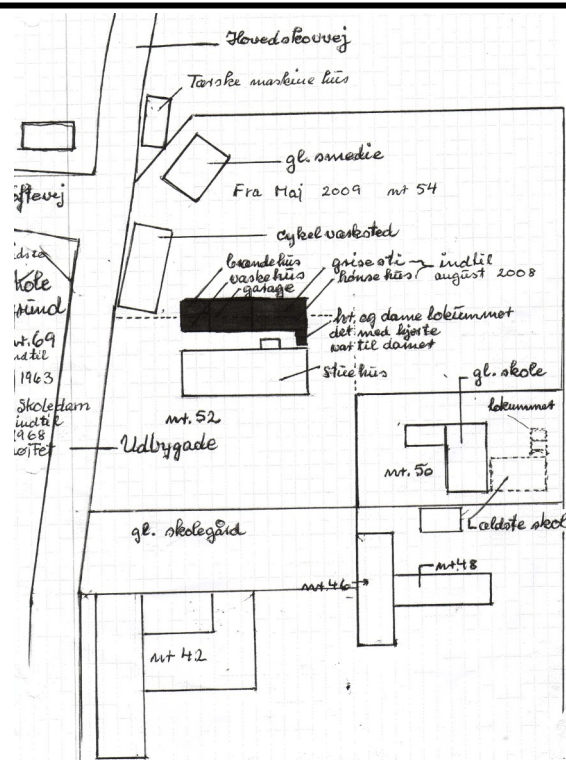 Hovedskovvej
Tærske maskine hus
gl. smedie
Fra Maj 2009 nr 54
cykel værksted
brændehus
vaskehus
garage
grise sti
hønse hus
indtil
august 2008
hr. og dame lokummet
det med hjerte
var til damer
Stuehus
gl. skole
lokummet
nr. 52
nr. 50
Udbygade
nr. 69
indtil
1963
Skoledam
indtil
1968
Ældste skol
gl. skolegård
nr. 46
nr. 48
nr 42